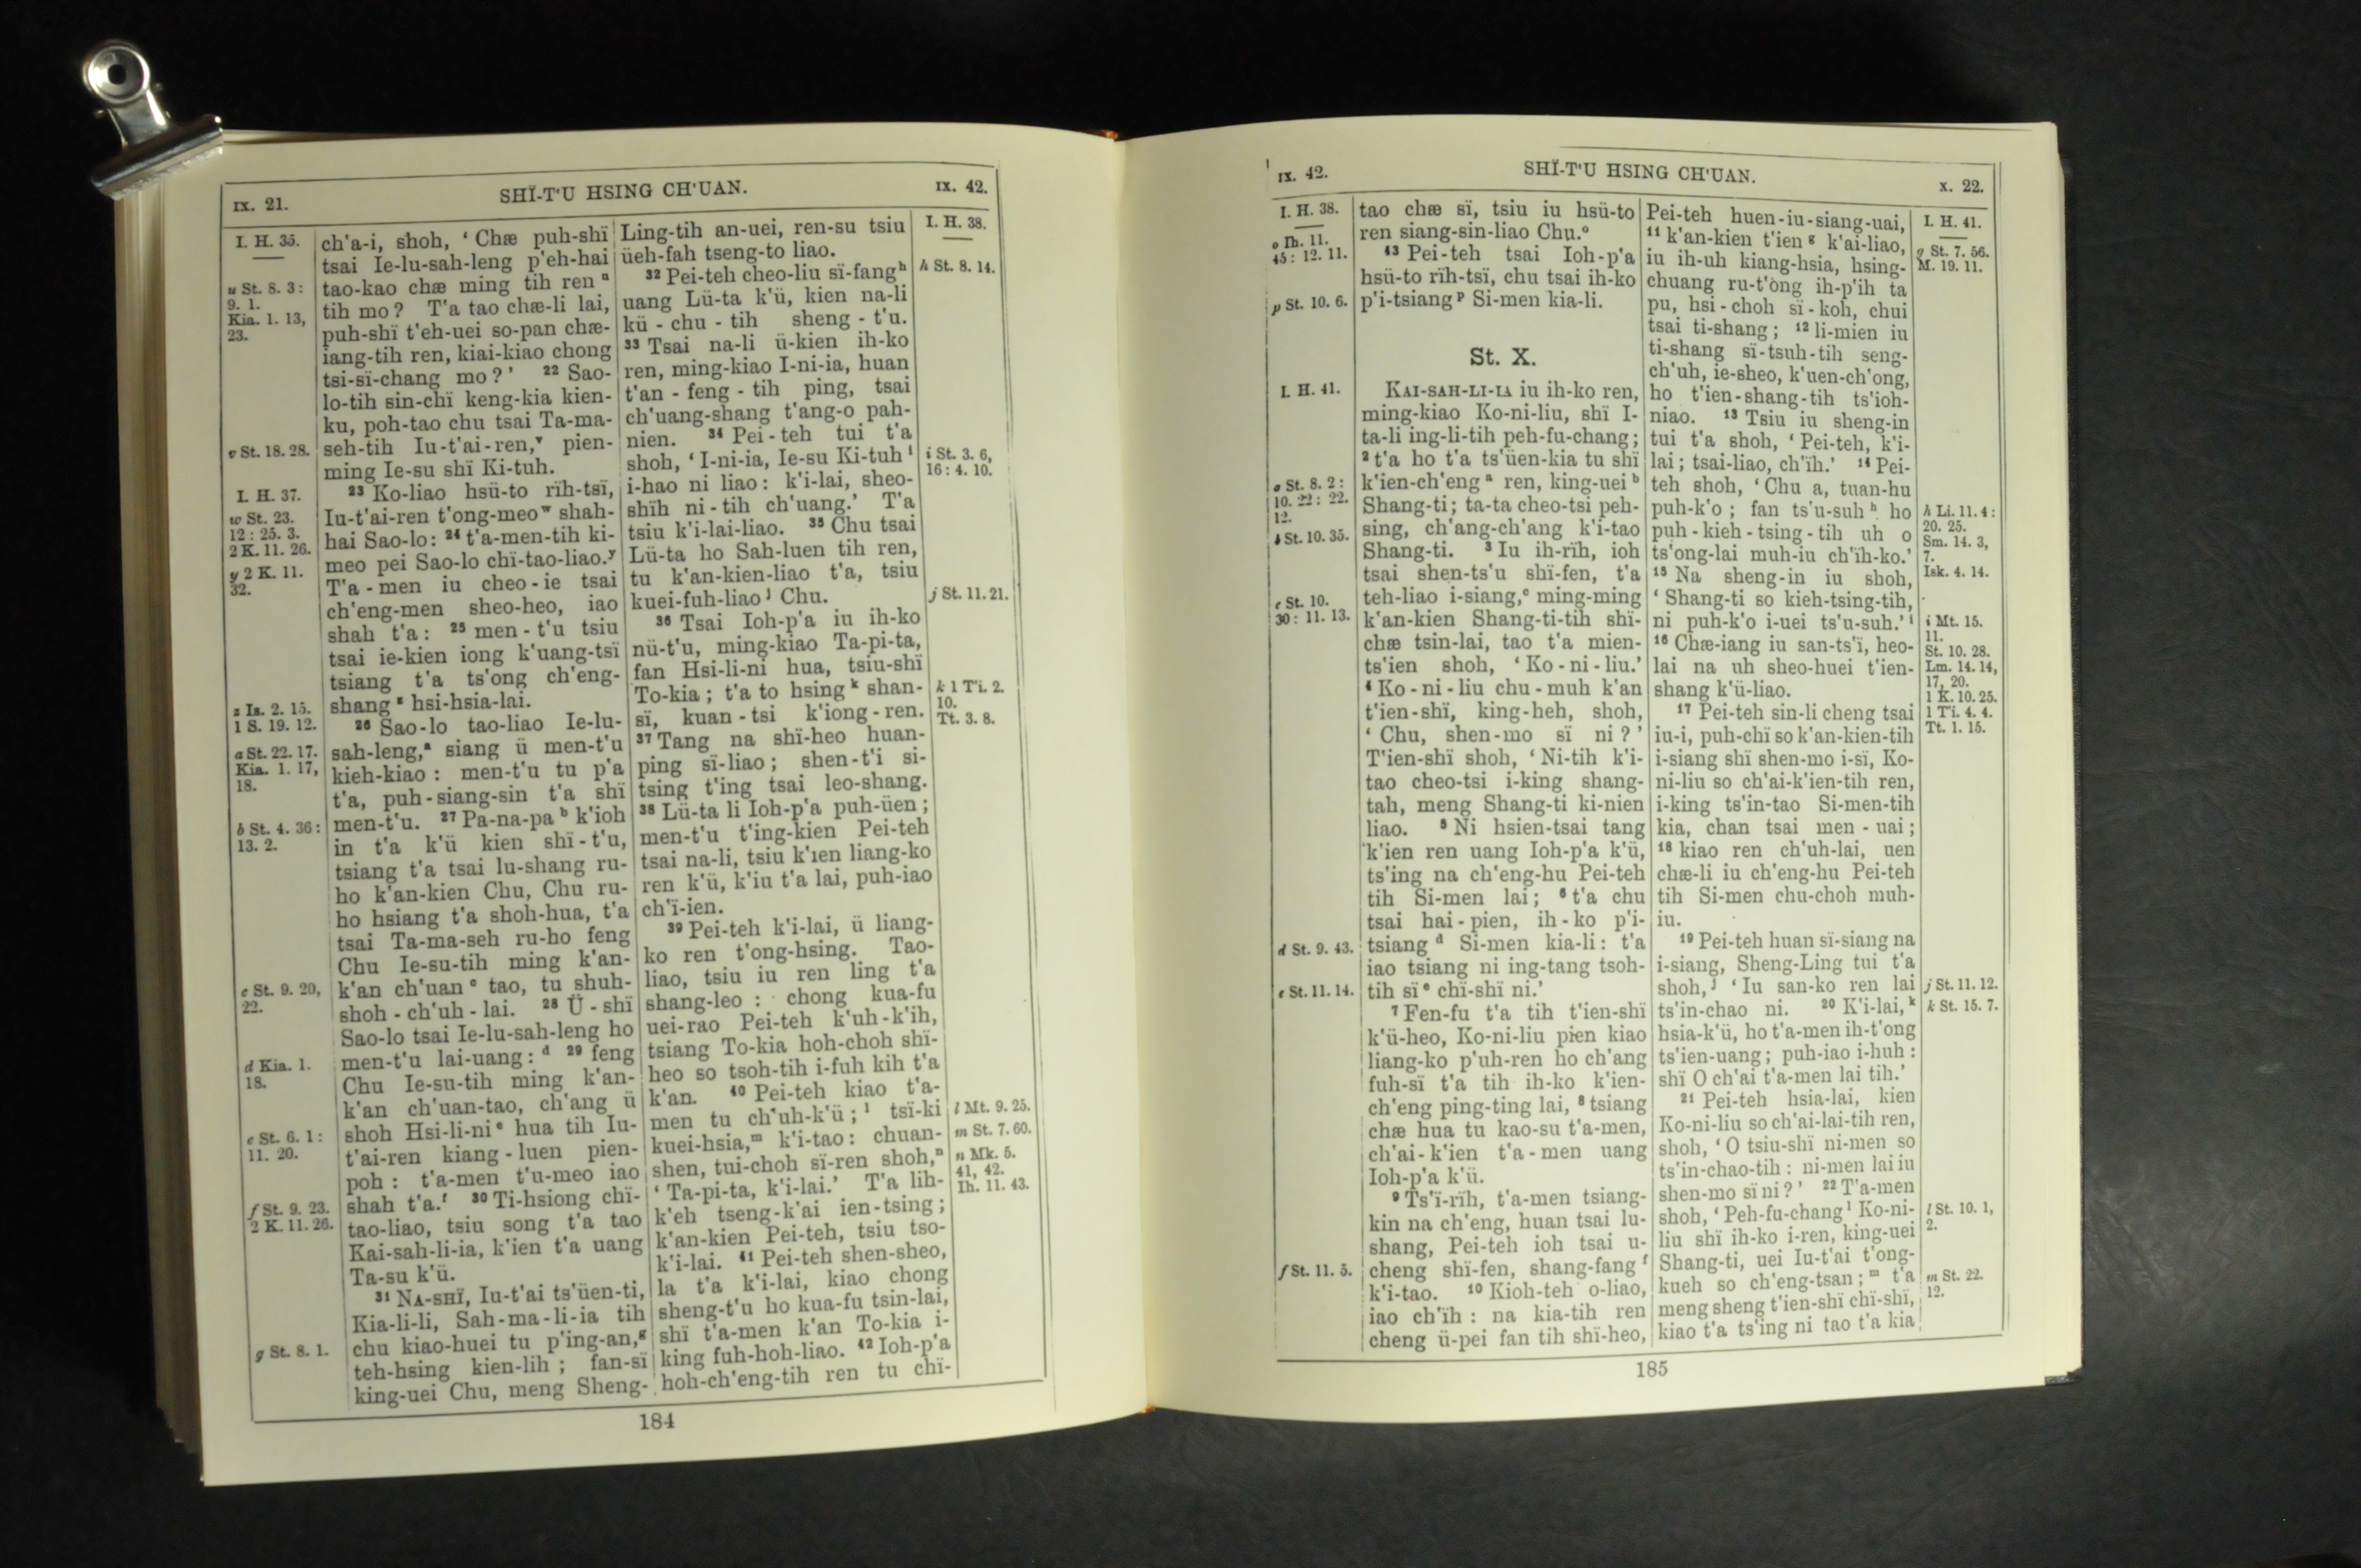 IX. 21.
SHÏ-T'U HSING CH'UAN.
IX. 42.
I. H. 35.
u St. 8. 3:
9. 1.
Kia. 1. 13,
23.
v St. 18. 28.
I. H. 37.
w St. 23.
12: 25. 3.
2 K. 11. 26.
y 2 K. 11.
32.
z Is. 2. 15.
1 S. 19. 12.
a St. 22. 17.
Kia. 1. 17,
18.
b St. 4. 36:
13. 2.
c St. 9. 20,
22.
d Kia. 1.
18.
e St. 6. 1:
11. 20.
f St. 9. 23.
2 K. 11. 26.
g St. 8. 1.
ch'a-i, shoh, ‘Chæ puh-shï
tsai Ie-lu-sah-leng p'eh-hai
tao-kao chæ ming tih ren u
tih mo? T'a tao chæ-li lai,
puh-shï t'eh-uei so-pan chæ-
iang-tih ren, kiai-kiao chong
tsi-sï-chang mo?’ 22 Sao-
lo-tih sin-chï keng-kia kien-
ku, poh-tao chu tsai Ta-ma-
seh-tih Iu-t'ai-ren, v pien-
ming Ie-su shï Ki-tuh.
23 Ko-liao hsü-to rïh-tsï,
Iu-t'ai-ren t'ong-meo w shah-
hai Sao-lo: 24 t'a-men-tih ki-
meo pei Sao-lo chï-tao-liao. y
T'a-men iu cheo-ie tsai
ch'eng-men sheo-heo, iao
shah t'a: 25 men-t'u tsiu
tsai ie-kien iong k'uang-tsï
tsiang t'a ts'ong ch'eng-
shang z hsi-hsia-lai.
26 Sao-lo tao-liao Ie-lu-
sah-leng, a siang ü men-t'u
kieh-kiao: men-t'u tu p'a
t'a, puh-siang-sin t'a shï
men-t'u. 27 Pa-na-pa b k'ioh
in t'a k'ü kien shï-t'u,
tsiang t'a tsai lu-shang ru-
ho k'an-kien Chu, Chu ru-
ho hsiang t'a shoh-hua, t'a
tsai Ta-ma-seh ru-ho feng
Chu Ie-su-tih ming k'an-
k'an ch'uan c tao, tu shuh-
shoh-ch'uh-lai. 28 Ü-shï
Sao-lo tsai Ie-lu-sah-leng ho
men-t'u lai-uang: d 29 feng
Chu Ie-su-tih ming k'an-
k'an ch'uan-tao, ch'ang ü
shoh Hsi-li-ni e hua tih Iu-
t'ai-ren kiang-luen pien-
poh: t'a-men t'u-meo iao
shah t'a. f 30 Ti-hsiong chï-
tao-liao, tsiu song t'a tao
Kai-sah-li-ia, k'ien t'a uang
Ta-su k'ü.
31 NA-SHÏ, Iu-t'ai ts'üen-ti,
Kia-li-li, Sah-ma-li-ia tih
chu kiao-huei tu p'ing-an, g
teh-hsing kien-lih; fan-sï
king-uei Chu, meng Sheng-
Ling-tih an-uei, ren-su tsiu
üeh-fah tseng-to liao.
32 Pei-teh cheo-liu sï-fang h
uang Lü-ta k'ü, kien na-li
kü-chu-tih sheng-t'u.
33 Tsai na-li ü-kien ih-ko
ren, ming-kiao I-ni-ia, huan
t'an-feng-tih ping, tsai
ch'uang-shang t'ang-o pah-
nien. 34 Pei-teh tui t'a
shoh, ‘I-ni-ia, Ie-su Ki-tuh i
i-hao ni liao: k'i-lai, sheo-
shïh ni-tih ch'uang.’ T'a
tsiu k'i-lai-liao. 35 Chu tsai
Lü-ta ho Sah-luen tih ren,
tu k'an-kien-liao t'a, tsiu
kuei-fuh-liao j Chu.
36 Tsai Ioh-p'a iu ih-ko
nü-t'u, ming-kiao Ta-pi-ta,
fan Hsi-li-ni hua, tsiu-shï
To-kia; t'a to hsing k shan-
sï, kuan-tsi k'iong-ren.
37 Tang na shï-heo huan-
ping sï-liao; shen-t'i si-
tsing t'ing tsai leo-shang.
38 Lü-ta li Ioh-p'a puh-üen;
men-t'u t'ing-kien Pei-teh
tsai na-li, tsiu k'ien liang-ko
ren k'ü, k'iu t'a lai, puh-iao
ch'ï-ien.
39 Pei-teh k'i-lai, ü liang-
ko ren t'ong-hsing. Tao-
liao, tsiu iu ren ling t'a
shang-leo: chong kua-fu
uei-rao Pei-teh k'uh-k'ih,
tsiang To-kia hoh-choh shï-
heo so tsoh-tih i-fuh kih t'a
k'an. 40 Pei-teh kiao t'a-
men tu ch'uh-k'ü; l tsï-ki
kuei-hsia, m k'i-tao: chuan-
shen, tui-choh sï-ren shoh, n
‘Ta-pi-ta, k'i-lai.’ T'a lih-
k'eh tseng-k'ai ien-tsing;
k'an-kien Pei-teh, tsiu tso-
k'i-lai. 41 Pei-teh shen-sheo,
la t'a k'i-lai, kiao chong
sheng-t'u ho kua-fu tsin-lai,
shï t'a-men k'an To-kia i-
king fuh-hoh-liao. 42 Ioh-p'a
hoh-ch'eng-tih ren tu chï-
I. H. 38.
h St. 8. 14.
i St. 3. 6,
16: 4. 10.
j St. 11. 21.
k 1 T'i. 2.
10.
Tt. 3. 8.
l Mt. 9. 25.
m St. 7. 60.
n Mk. 5.
41, 42.
Ih. 11. 43.
184
IX. 42.
SHÏ-T'U HSING CH'UAN.
X. 22.
I. H. 38.
o Ih. 11.
45: 12. 11.
p St. 10. 6.
I. H. 41.
a St. 8. 2:
10. 22: 22.
12.
b St. 10. 35.
c St. 10.
30: 11. 13.
d St. 9. 43.
e St. 11. 14.
f St. 11. 5.
tao chæ sï, tsiu iu hsü-to
ren siang-sin-liao Chu. o
43 Pei-teh tsai Ioh-p'a
hsü-to rïh-tsï, chu tsai ih-ko
p'i-tsiang p Si-men kia-li.
St. X.
KAI-SAH-LI-IA iu ih-ko ren,
ming-kiao Ko-ni-liu, shï I-
ta-li ing-li-tih peh-fu-chang;
2 t'a ho t'a ts'üen-kia tu shï
k'ien-ch'eng a ren, king-uei b
Shang-ti; ta-ta cheo-tsi peh-
sing, ch'ang-ch'ang k'i-tao
Shang-ti. 3 Iu ih-rïh, ioh
tsai shen-ts'u shï-fen, t'a
teh-liao i-siang, c ming-ming
k'an-kien Shang-ti-tih shï-
chæ tsin-lai, tao t'a mien-
ts'ien shoh, ‘Ko-ni-liu.’
4 Ko-ni-liu chu-muh k'an
t'ien-shï, king-heh, shoh,
‘Chu, shen-mo sï ni?’
T'ien-shï shoh, ‘Ni-tih k'i-
tao cheo-tsi i-king shang-
tah, meng Shang-ti ki-nien
liao. 5 Ni hsien-tsai tang
k'ien ren uang Ioh-p'a k'ü,
ts'ing na ch'eng-hu Pei-teh
tih Si-men lai; 6 t'a chu
tsai hai-pien, ih-ko p'i-
tsiang d Si-men kia-li: t'a
iao tsiang ni ing-tang tsoh-
tih sï e chï-shï ni.’
7 Fen-fu t'a tih t'ien-shï
k'ü-heo, Ko-ni-liu pien kiao
liang-ko p'uh-ren ho ch'ang
fuh-sï t'a tih ih-ko k'ien-
ch'eng ping-ting lai, 8 tsiang
chæ hua tu kao-su t'a-men,
ch'ai-k'ien t'a-men uang
Ioh-p'a k'ü.
9 Ts'ï-rïh, t'a-men tsiang-
kin na ch'eng, huan tsai lu-
shang, Pei-teh ioh tsai u-
cheng shï-fen, shang-fang f
k'i-tao. 10 Kioh-teh o-liao,
iao ch'ïh: na kia-tih ren
cheng ü-pei fan tih shï-heo,
Pei-teh huen-iu-siang-uai,
11 k'an-kien t'ien g k'ai-liao,
iu ih-uh kiang-hsia, hsing-
chuang ru-t'ong ih-p'ih ta
pu, hsi-choh sï-koh, chui
tsai ti-shang; 12 li-mien iu
ti-shang sï-tsuh-tih seng-
ch'uh, ie-sheo, k'uen-ch'ong,
ho t'ien-shang-tih ts'ioh-
niao. 13 Tsiu iu sheng-in
tui t'a shoh, ‘Pei-teh, k'i-
lai; tsai-liao, ch'ïh.’ 14 Pei-
teh shoh, ‘Chu a, tuan-hu
puh-k'o; fan ts'u-suh h ho
puh-kieh-tsing-tih uh o
ts'ong-lai muh-iu ch'ïh-ko.’
15 Na sheng-in iu shoh,
‘Shang-ti so kieh-tsing-tih,
ni puh-k'o i-uei ts'u-suh.’ i
16 Chæ-iang iu san-ts'ï, heo-
lai na uh sheo-huei t'ien-
shang k'ü-liao.
17 Pei-teh sin-li cheng tsai
iu-i, puh-chï so k'an-kien-tih
i-siang shï shen-mo i-sï, Ko-
ni-liu so ch'ai-k'ien-tih ren,
i-king ts'in-tao Si-men-tih
kia, chan tsai men-uai;
18 kiao ren ch'uh-lai, uen
chæ-li iu ch'eng-hu Pei-teh
tih Si-men chu-choh muh-
iu.
19 Pei-teh huan sï-siang na
i-siang, Sheng-Ling tui t'a
shoh, j ‘Iu san-ko ren lai
ts'in-chao ni. 20 K'i-lai, k
hsia-k'ü, ho t'a-men ih-t'ong
ts'ien-uang; puh-iao i-huh:
shï O ch'ai t'a-men lai tih.’
21 Pei-teh hsia-lai, kien
Ko-ni-liu so ch'ai-lai-tih ren,
shoh, ‘O tsiu-shï ni-men so
ts'in-chao-tih: ni-men lai iu
shen-mo sï ni?’ 22 T'a-men
shoh, ‘Peh-fu-chang l Ko-ni-
liu shï ih-ko i-ren, king-uei
Shang-ti, uei Iu-t'ai t'ong-
kueh so ch'eng-tsan; m t'a
meng sheng t'ien-shï chï-shï,
kiao t'a ts'ing ni tao t'a kia
I. H. 41.
g St. 7. 56.
M. 19. 11.
h Li. 11. 4:
20. 25.
Sm. 14. 3,
7.
Isk. 4. 14.
i Mt. 15.
11.
St. 10. 28.
Lm. 14. 14,
17, 20.
1 K. 10. 25.
1 T'i. 4. 4.
Tt. 1. 15.
j St. 11. 12.
k St. 15. 7.
l St. 10. 1,
2.
m St. 22.
12.
185